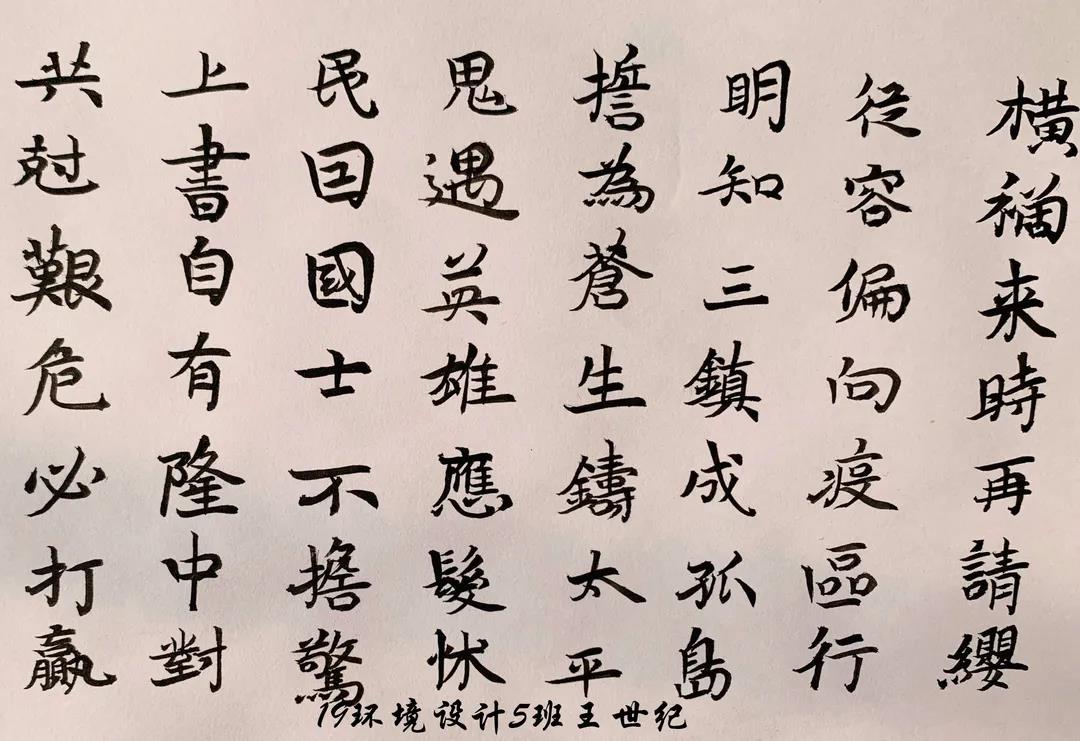 横禍来時再請纓
從容偏向疫區行
明知三鎮成孤島
誓為蒼生鑄太平
鬼遇英雄應髮怵
民因國士不擔驚
上書自有隆中對
共尅艱危必打贏
19环境设计5班王世纪